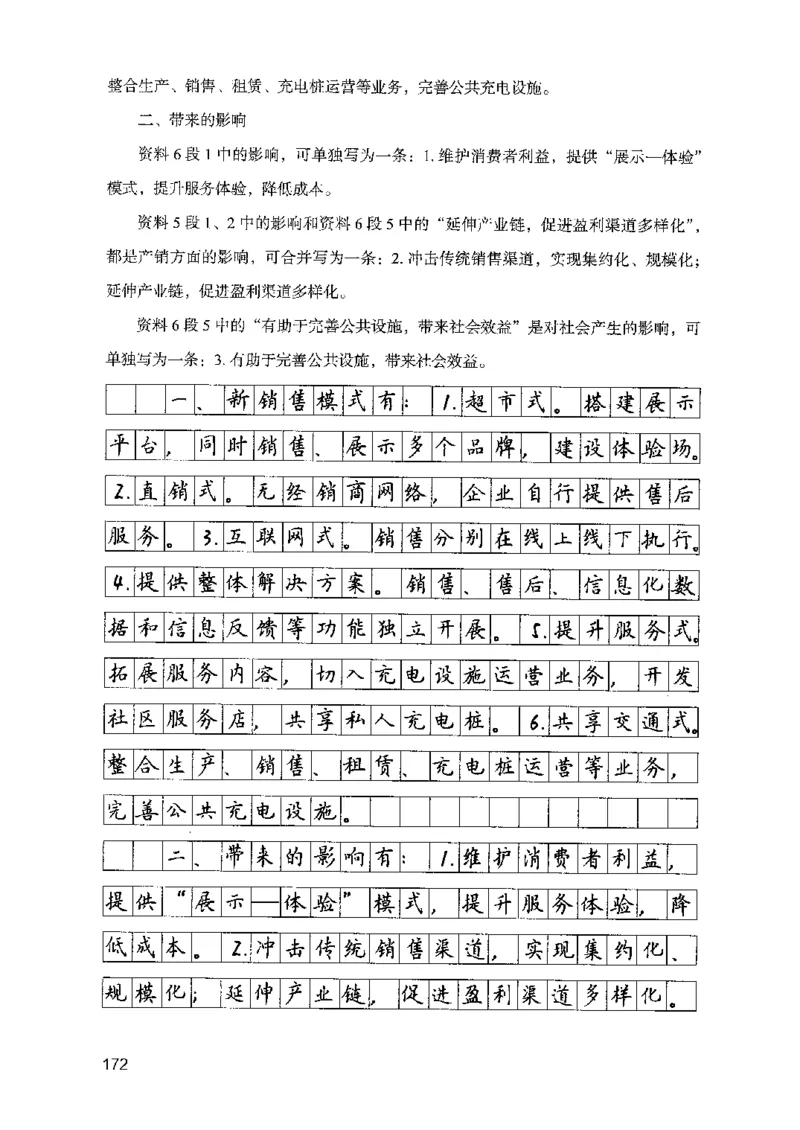 整合生产、销售、租赁、充电桩运营等业务，完善公共充电设施。
二、带来的影响
资料6段1中的影响，可单独写为一条：1.维护消费者利益，提供“展示—体验”
模式，提升服务体验，降低成本。
资料5段1、2中的影响和资料6段5中的“延伸产业链，促进盈利渠道多样化”，
都是产销方面的影响，可合并写为一条：2.冲击传统销售渠道，实现集约化、规模化；
延伸产业链，促进盈利渠道多样化。
资料6段5中的“有助于完善公共设施，带来社会效益”是对社会产生的影响，可
单独写为一条：3.有助于完善公共设施，带来社会效益。
一、新销售模式有：1.超市式。搭建展示
平台，同时销售、展示多个品牌，建设体验场。
2.直销式。无经销商网络，企业自行提供售后
服务。3.互联网式。销售分别在线上线下执行。
4.提供整体解决方案。销售、售后、信息化数
据和信息反馈等功能独立开展。5.提升服务式。
拓展服务内容，切入充电设施运营业务，开发
社区服务店，共享私人充电桩。6.共享交通式。
整合生产、销售、租赁、充电桩运营等业务，
完善公共充电设施。
二、带来的影响有：1.维护消费者利益，
提供“展示—体验”模式，提升服务体验，降
低成本。2.冲击传统销售渠道，实现集约化、
规模化；延伸产业链，促进盈利渠道多样化。
172